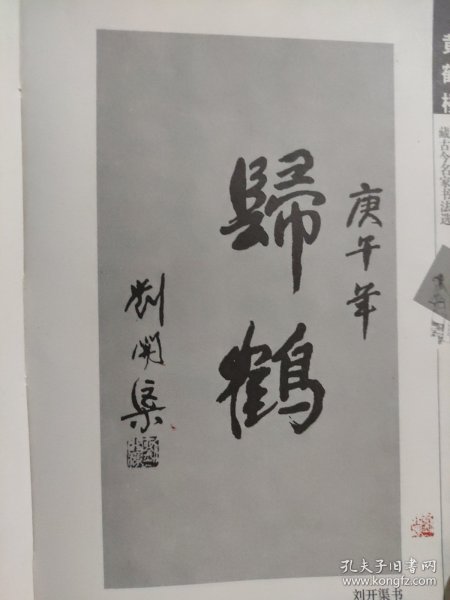 庚午年
歸鶴
劉開渠
黄鹤楼
藏古今名家书法选
刘开渠书
孔夫子旧书网